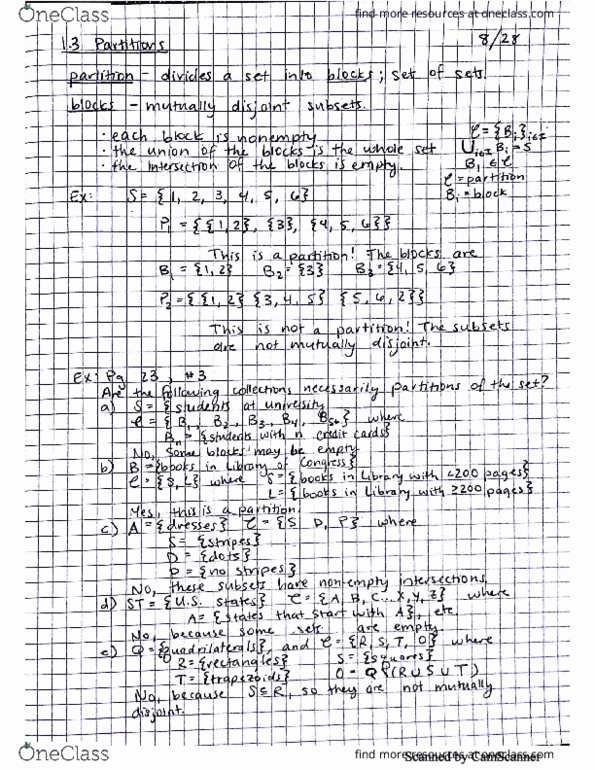 OneClass
find more resources at oneclass.com
1.3 Partitions
8/28
partition - divides a set into blocks; set of sets.
blocks - mutually disjoint subsets.
· each block is nonempty
· the union of the blocks is the whole set
· the intersection of the blocks is empty.
C = {Bi}i∈I
∪i∈I Bi = S
Bi ∈ C
C = partition
Bi = block
Ex: S = {1, 2, 3, 4, 5, 6}
P1 = {{1,2}, {3}, {4, 5, 6}}
This is a partition! The blocks are
B1 = {1,2} B2 = {3} B3 = {4, 5, 6}
P2 = {{1,2} {3,4,5} {5,6,2}}
This is not a partition! The subsets
are not mutually disjoint.
Ex: Pg 23, #3
Are the following collections necessarily partitions of the set?
a) S = {students at university
C = {B1, B2, B3, B4, B5+} where
Bn = {students with n credit cards}
No, some blocks may be empty
b) B = {books in Library of Congress}
C = {S, L} where S = {books in Library with <200 pages}
L = {books in Library with ≥200 pages}
Yes, this is a partition.
c) A = {dresses} C = {S D, P} where
S = {stripes}
D = {dots}
P = {no stripes}
No, these subsets have non-empty intersections.
d) ST = {U.S. states} C = {A, B, C... X, Y, Z} where
A = {states that start with A}, etc
No, because some sets are empty.
e) Q = {quadrilaterals}, and C = {R, S, T, O} where
R = {rectangles} S = {squares}
T = {trapezoids} O = Q \ (R ∪ S ∪ T)
No, because S ⊆ R, so they are not mutually
disjoint.
OneClass
find more resources at oneclass.com
Scanned by CamScanner